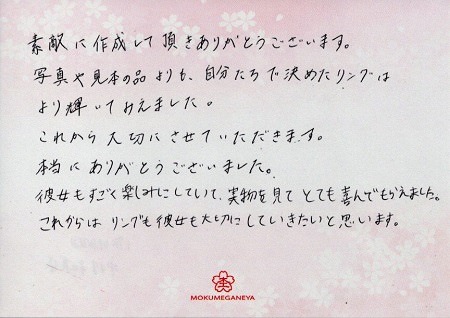 素敵に作成して頂きありがとうございます。
写真や見本の品よりも、自分たちで決めたリングは
より輝いてみえました。
これから大切にさせていただきます。
本当にありがとうございました。
彼女もすごく楽しみにしていて、実物を見てとても喜んでもらえました。
これからはリングも彼女も大切にしていきたいと思います。
MOKUMEGANEYA